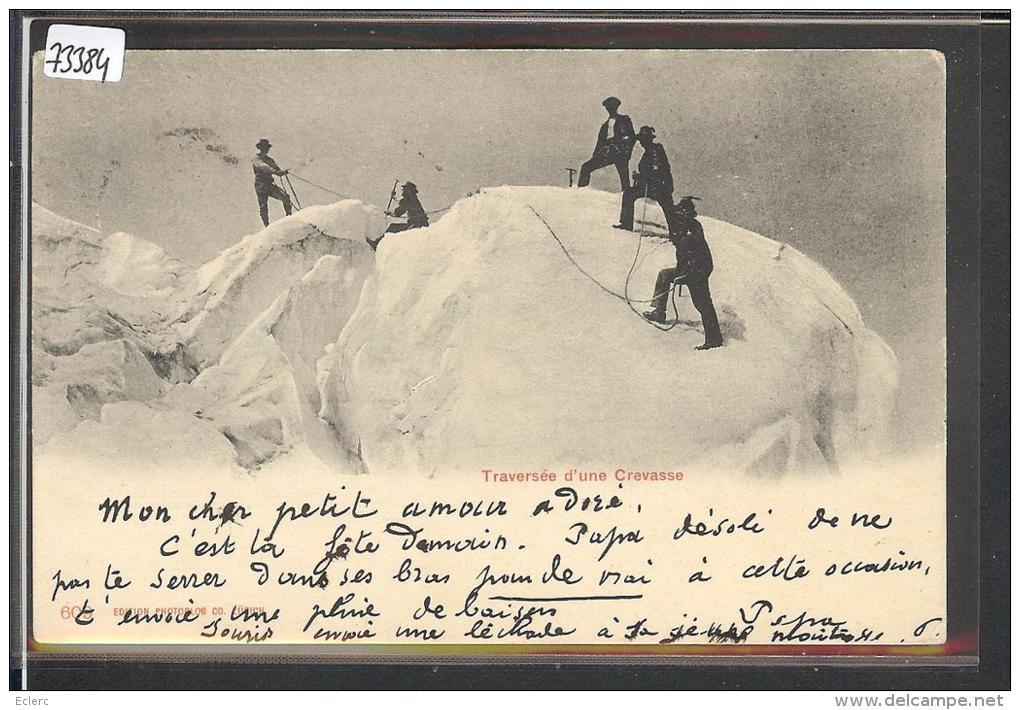 73384
Traversée d'une Crevasse
Mon cher petit amour adoré,
C'est la fête Demain. Papa désolé de ne
pas te serrer Dans ses bras pour de vrai à cette occasion,
t'envoie une pluie de baisers
Papa
602 EDITION PHOTOGLOB CO. ZÜRICH
Souris envoie une léchade à sa jeune
Eclerc
www.delcampe.net